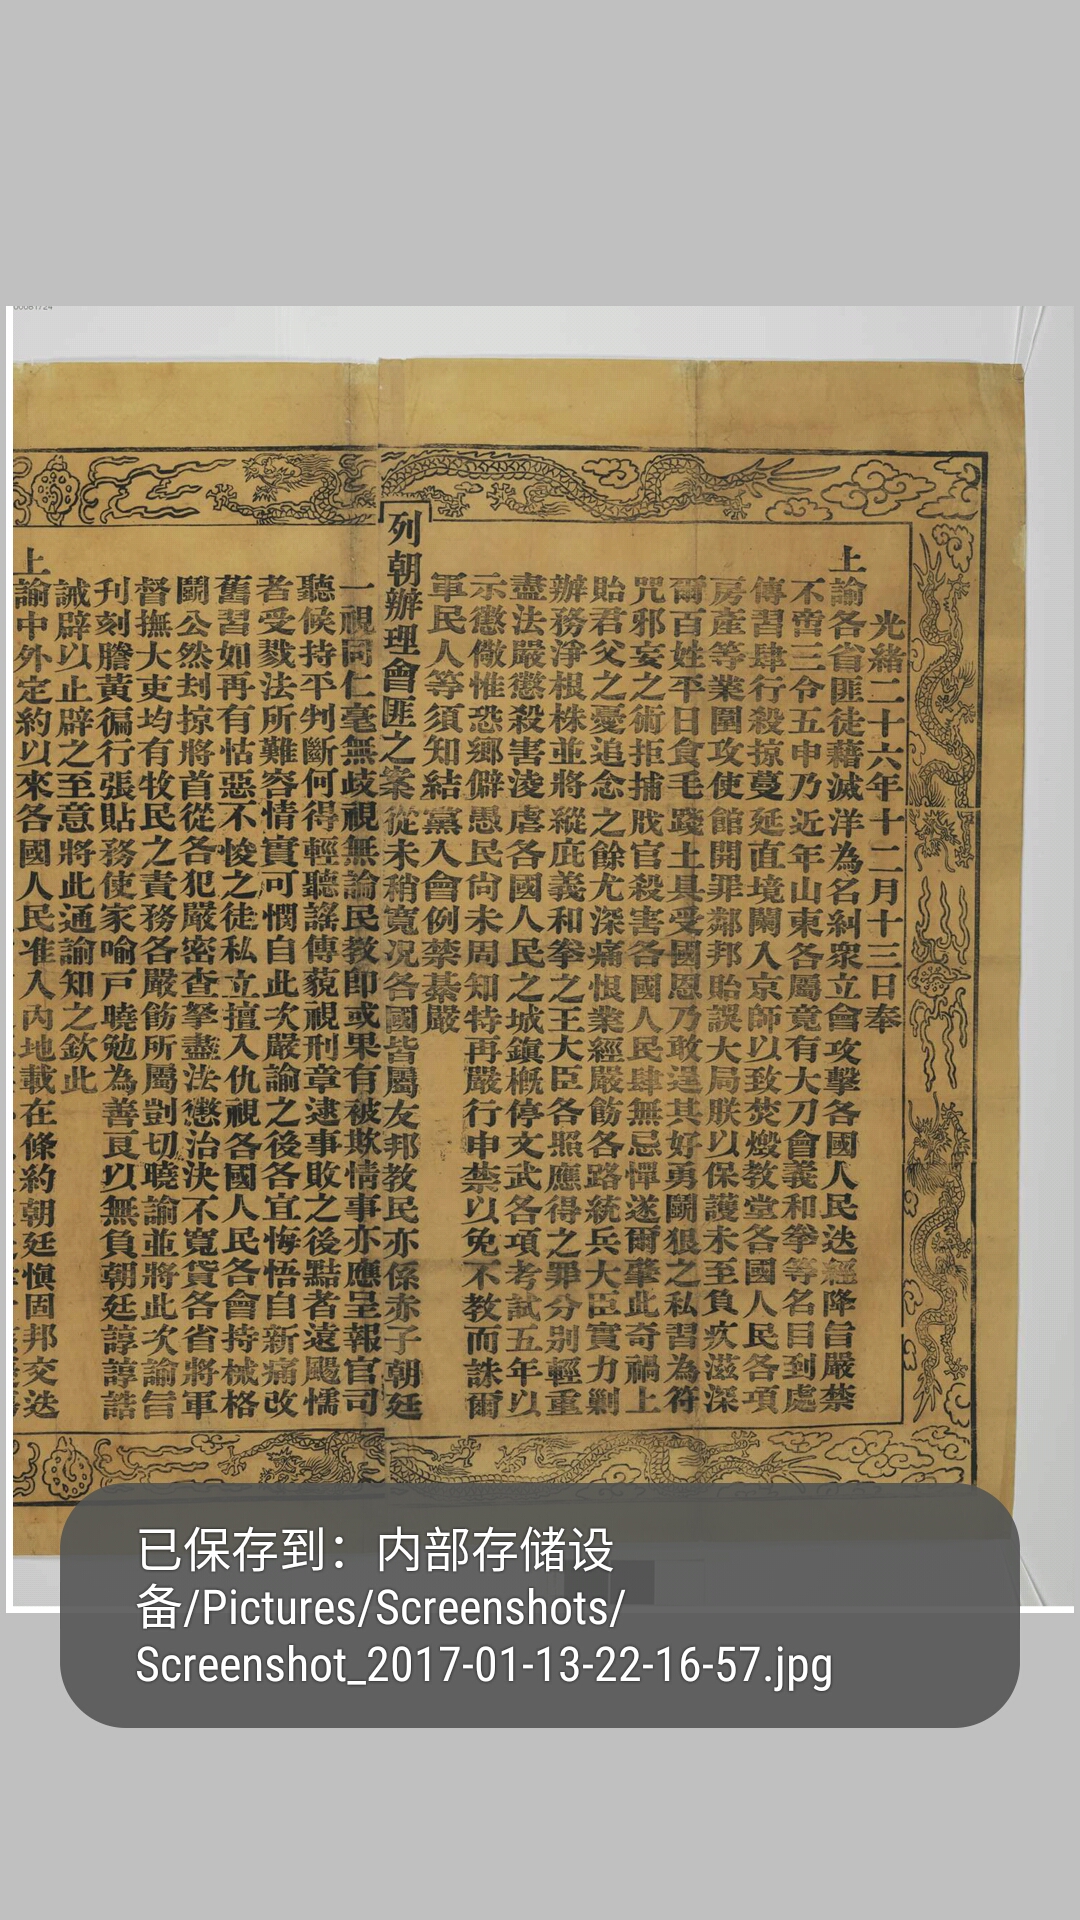 00081724
光緒二十六年十二月十三日奉
上諭各省匪徒藉滅洋為名糾眾立會攻擊各國人民迭經降旨嚴禁
不啻三令五申乃近年山東各屬竟有大刀會義和拳等名目到處
傳習肆行殺掠蔓延直境闌入京師以致焚燬教堂各國人民各項
房產等業圍攻使館開罪鄰邦貽誤大局朕以保護未至負疚滋深
爾百姓平日食毛踐土具受國恩乃敢逞其好勇鬭狠之私習為符
咒邪妄之術拒捕戕官殺害各國人民肆無忌憚遂爾肇此奇禍上
貽君父之憂追念之餘尤深痛恨業經嚴飭各路統兵大臣實力剿
辦務淨根株並將縱庇義和拳之王大臣各照應得之罪分別輕重
盡法嚴懲殺害淩虐各國人民之城鎮槪停文武各項考試五年以
示懲儆惟恐鄉僻愚民尚未周知特再嚴行申禁以免不教而誅爾
軍民人等須知結黨入會例禁綦嚴
列朝辦理會匪之案從未稍寬況各國皆屬友邦教民亦係赤子朝廷
一視同仁毫無歧視無論民教卽或果有被欺情事亦應呈報官司
聽候持平判斷何得輕聽謠傳藐視刑章逮事敗之後黠者遠颺懦
者受戮法所難容情實可憫自此次嚴諭之後各宜悔悟自新痛改
舊習如再有怙惡不悛之徒私立擅入仇視各國人民各會持械格
鬭公然刦掠將首從各犯嚴密查拏盡法懲治決不寬貸各省將軍
督撫大吏均有牧民之責務各嚴飭所屬剴切曉諭並將此次諭旨
刊刻謄黃徧行張貼務使家喻戶曉勉為善良以無負朝廷諄諄誥
誡辟以止辟之至意將此通諭知之欽此
上諭中外定約以來各國人民准入內地載在條約朝廷慎固邦交迭
已保存到：内部存储设
备/Pictures/Screenshots/
Screenshot_2017-01-13-22-16-57.jpg